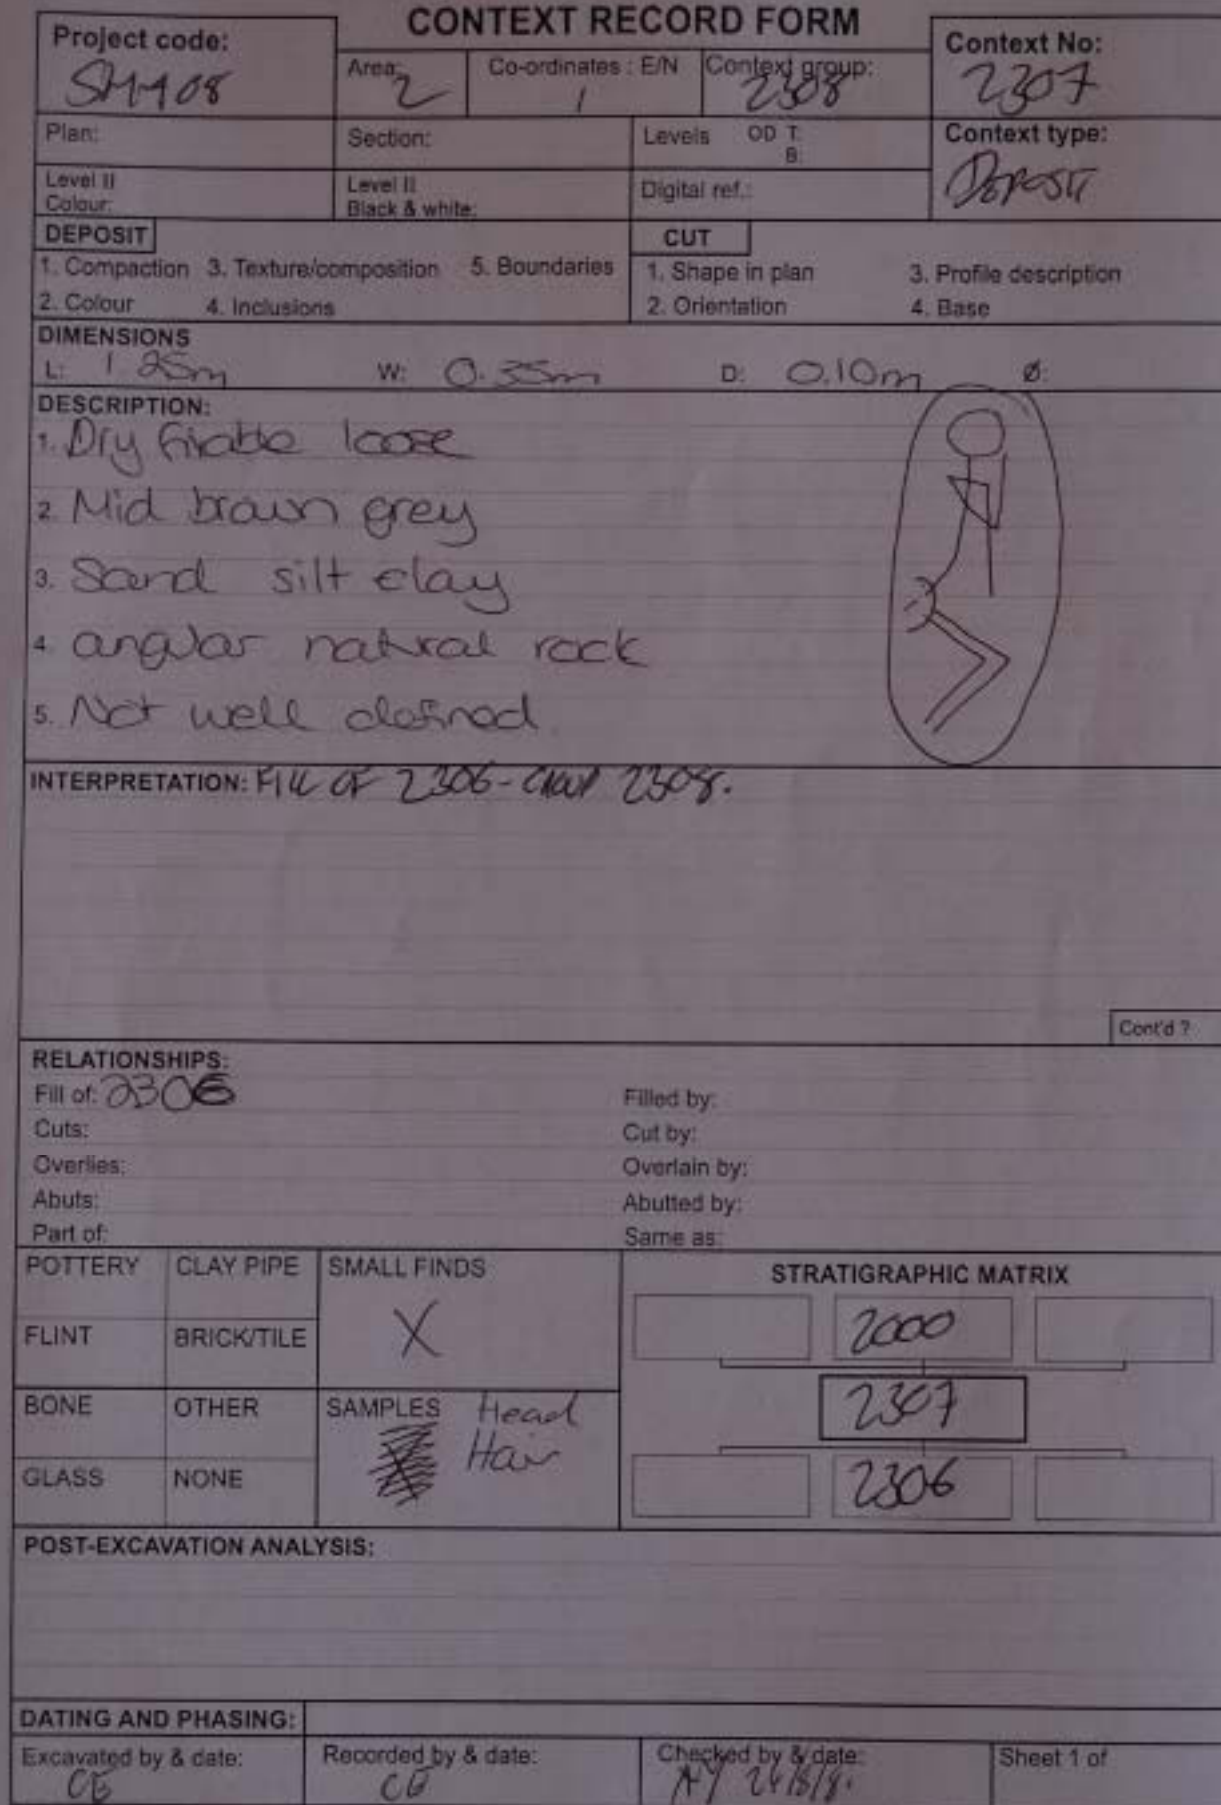 CONTEXT RECORD FORM
Project code:
Area: 2
Co-ordinates : E/N
/
Context group:
2308
Context No:
2307
Plan:
Section:
Levels OD T:
B:
Context type:
Deposit
Level II
Colour:
Level II
Black & white:
Digital ref.:
DEPOSIT
1. Compaction 3. Texture/composition 5. Boundaries
2. Colour 4. Inclusions
CUT
1. Shape in plan 3. Profile description
2. Orientation 4. Base
DIMENSIONS
L: 1.25m W: 0.35m D: 0.10m Ø:
DESCRIPTION:
1. Dry friable loose
2. Mid brown grey
3. Sand silt clay
4. angular natural rock
5. Not well defined
INTERPRETATION: Fill of 2306 - Group 2308.
Cont'd ?
RELATIONSHIPS:
Fill of: 2306 Filled by:
Cuts: Cut by:
Overlies: Overlain by:
Abuts: Abutted by:
Part of: Same as:
POTTERY CLAY PIPE SMALL FINDS
X
FLINT BRICK/TILE
BONE OTHER SAMPLES Head
Hair
GLASS NONE
STRATIGRAPHIC MATRIX
2000
2307
2306
POST-EXCAVATION ANALYSIS:
DATING AND PHASING:
Excavated by & date:
CE
Recorded by & date:
CE
Checked by & date:
Sheet 1 of